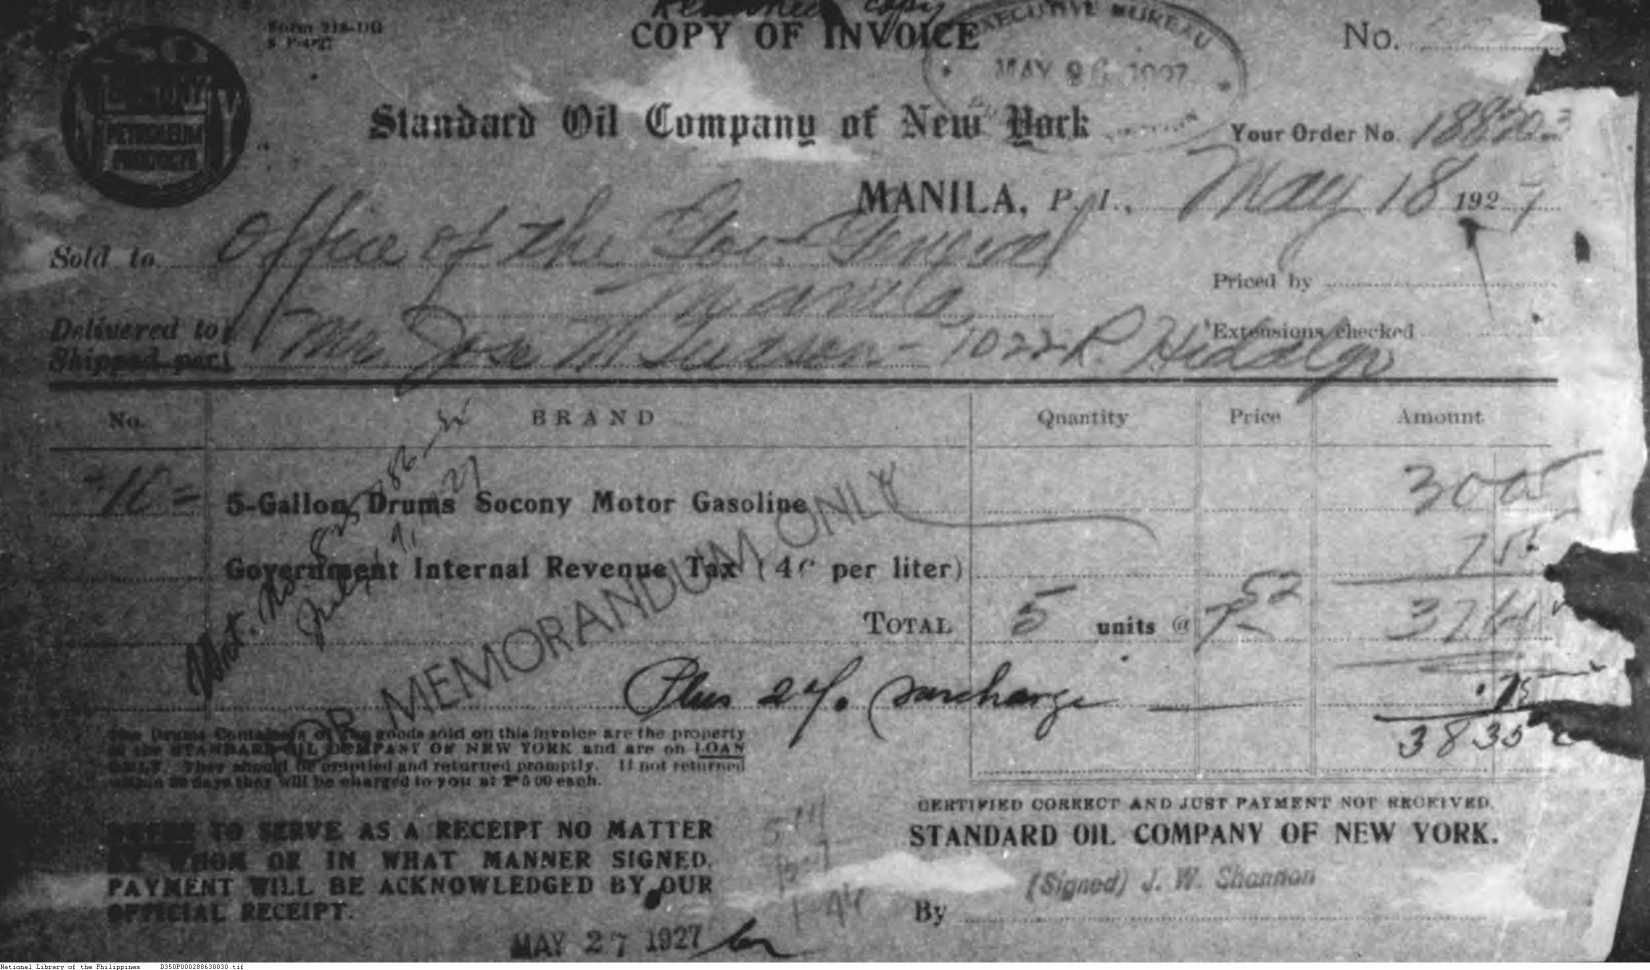 Form 218-DG
COPY OF INVOICE
No.
EXECUTIVE BUREAU
MAY 1927
PETROLEUM
PRODUCTS
Standard Oil Company of New York
Your Order No.
MANILA, P. I., May 18 1927
Sold to Office of the Gov. General
Manila,
Priced by
Delivered to
Shipped per
Mr. Jose M Tuason - 1022 R. Hidalgo
Extensions checked
No. BRAND Quantity Price Amount
10 5-Gallon Drums Socony Motor Gasoline 30
Government Internal Revenue Tax (4c per liter) 7
TOTAL 5 units @ 7 52 37 60
FOR MEMORANDUM ONLY
Plus 2%. surcharge .75
38 35
The Drums Containers of the goods sold on this invoice are the property
of the STANDARD OIL COMPANY OF NEW YORK and are on LOAN
ONLY. They should be emptied and returned promptly. If not returned
within 30 days they will be charged to you at ₱5 00 each.
CERTIFIED CORRECT AND JUST PAYMENT NOT RECEIVED.
STANDARD OIL COMPANY OF NEW YORK.
TO SERVE AS A RECEIPT NO MATTER
BY WHOM OR IN WHAT MANNER SIGNED.
PAYMENT WILL BE ACKNOWLEDGED BY OUR
OFFICIAL RECEIPT.
(Signed) J. W. Shannon
By
MAY 27 1927
National Library of the Philippines D350P000288630030.tif